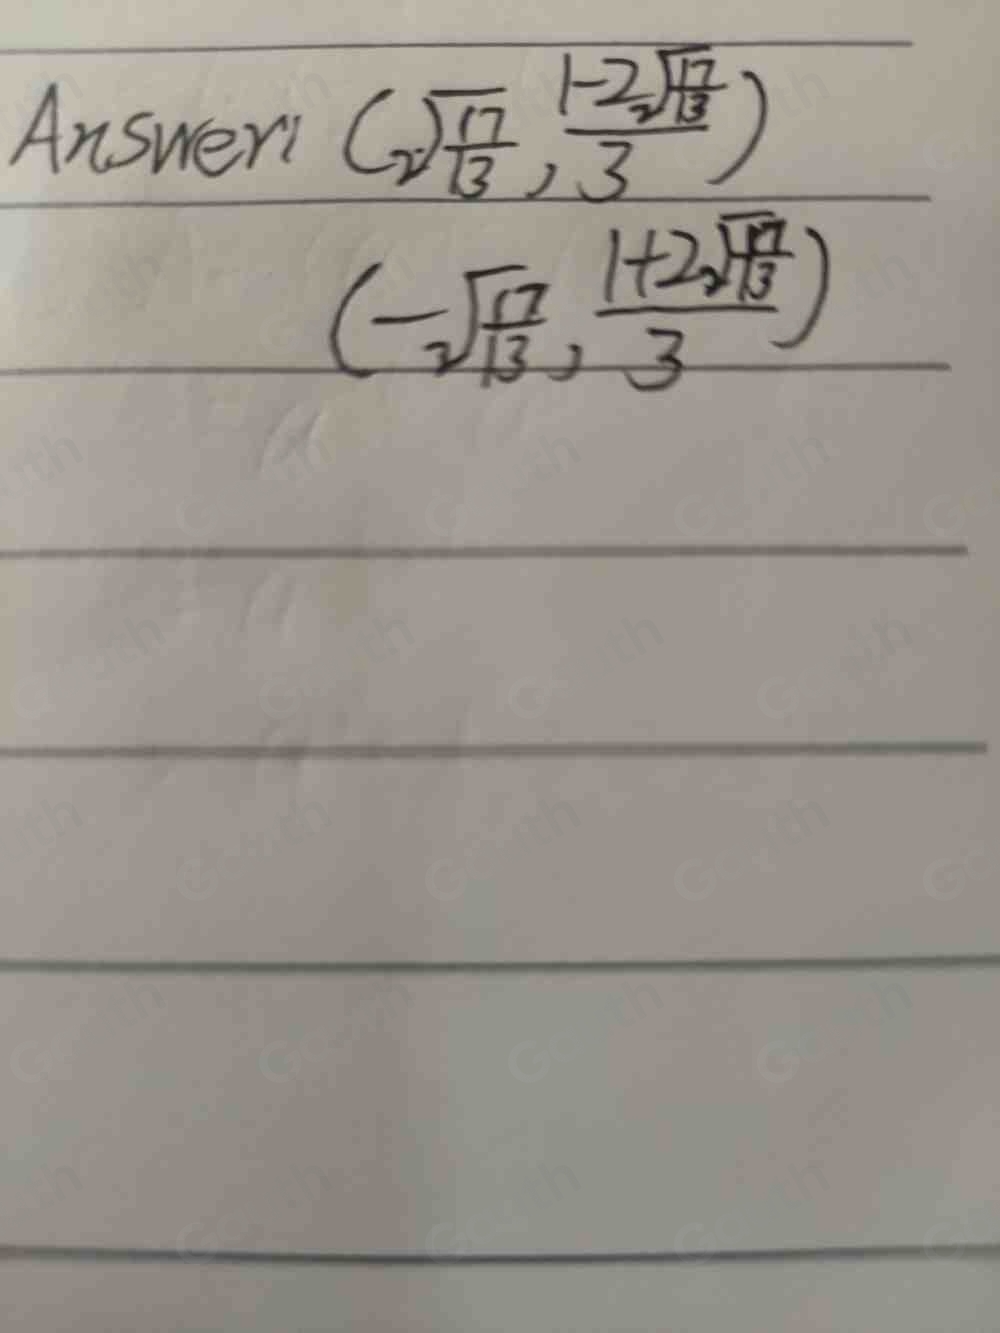 Answer: (₂√(17/13), (1-2₂√(17/13))/3)
(-₂√(17/13), (1+2₂√(17/13))/3)